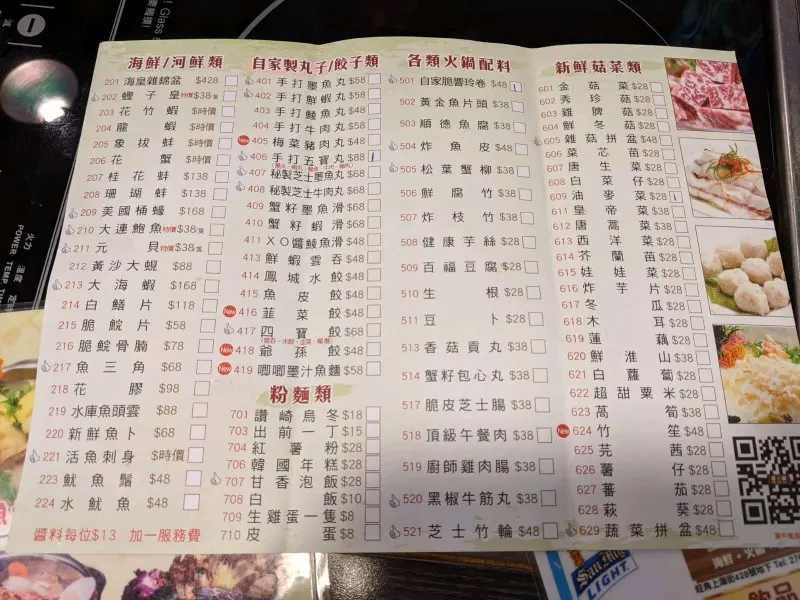 海鮮/河鮮類
201 海皇雜錦盆 $428
202 蟶子皇 特價$38/隻
203 花竹蝦 $時價
204 龍蝦 $時價
205 象拔蚌 $時價
206 花蟹 $時價
207 桂花蚌 $138
208 珊瑚蚌 $138
209 美國桶蠔 $168
210 大連鮑魚 特價$38/隻
211 元貝 特價$38/隻
212 黃沙大蜆 $88
213 大海蝦 $168
214 白鱔片 $118
215 脆鯇片 $58
216 脆鯇骨腩 $78
217 魚三角 $68
218 花膠 $98
219 水庫魚頭雲 $88
220 新鮮魚卜 $68
221 活魚刺身 $時價
223 魷魚鬚 $48
224 水魷魚 $48
醬料每位$13 加一服務費
自家製丸子/餃子類
401 手打墨魚丸 $58
402 手打鮮蝦丸 $58
403 手打鯪魚丸 $48
404 手打牛肉丸 $58
New 405 梅菜豬肉丸 $48
406 手打五寶丸 $88
407 秘製芝士墨魚丸 $68
408 秘製芝士牛肉丸 $68
409 蟹籽墨魚滑 $68
410 蟹籽蝦滑 $68
411 XO醬鯪魚滑 $48
413 鮮蝦雲吞 $48
414 鳳城水餃 $48
415 魚皮餃 $48
New 416 韮菜餃 $48
417 四寶餃 $68
New 418 爺孫餃 $48
New 419 唧唧墨汁魚麵 $58
粉麵類
701 讚崎烏冬 $18
703 出前一丁 $15
704 紅薯粉 $28
706 韓國年糕 $28
707 甘香泡飯 $28
708 白飯 $10
709 生雞蛋一隻 $8
710 皮蛋 $8
各類火鍋配料
501 自家脆響玲卷 $48
502 黃金魚片頭 $38
503 順德魚腐 $38
504 炸魚皮 $48
505 松葉蟹柳 $38
506 鮮腐竹 $38
507 炸枝竹 $38
508 健康芋絲 $28
509 百福豆腐 $28
510 生根 $28
511 豆卜 $28
513 香菇貢丸 $38
514 蟹籽包心丸 $38
517 脆皮芝士腸 $38
518 頂級午餐肉 $38
519 廚師雞肉腸 $38
520 黑椒牛筋丸 $38
521 芝士竹輪 $48
新鮮菇菜類
601 金菇菜 $28
602 秀珍菇 $28
603 雞脾菇 $28
604 鮮冬菇 $28
605 雜菇拼盆 $48
606 菜芯苗 $28
607 唐生菜 $28
608 白菜仔 $28
609 油麥菜 $28
611 皇帝菜 $38
612 唐萵菜 $38
613 西洋菜 $28
614 芥蘭苗 $28
615 娃娃菜 $28
616 炸芋片 $28
617 冬瓜 $28
618 木耳 $28
619 蓮藕 $28
620 鮮淮山 $38
621 白蘿蔔 $28
622 超甜粟米 $28
623 萵筍 $38
New 624 竹笙 $48
625 芫茜 $28
626 薯仔 $28
627 蕃茄 $28
628 萩葵 $28
629 蔬菜拼盆 $48
火力
POWER
溫度
TEMP
LIGHT
海鮮·火鍋
旺角上海街428號地下 Tel: 27